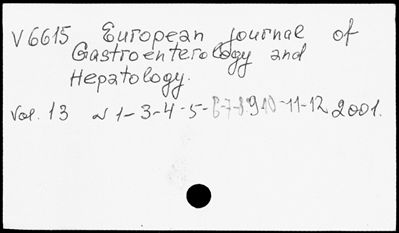 V 6615 European journal of
Gastroenterology and
Hepatology.
Vol. 13 N 1-3-4-5-6-7-8-9-10-11-12 2001.